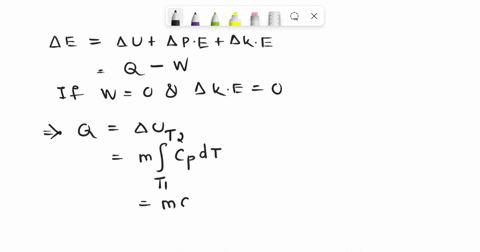 ΔE = ΔU + ΔP.E + ΔK.E
= Q - W
If W = 0 & ΔK.E = 0
⇒ Q = ΔU
= m∫_{T1}^{T2} Cp dT
= mc